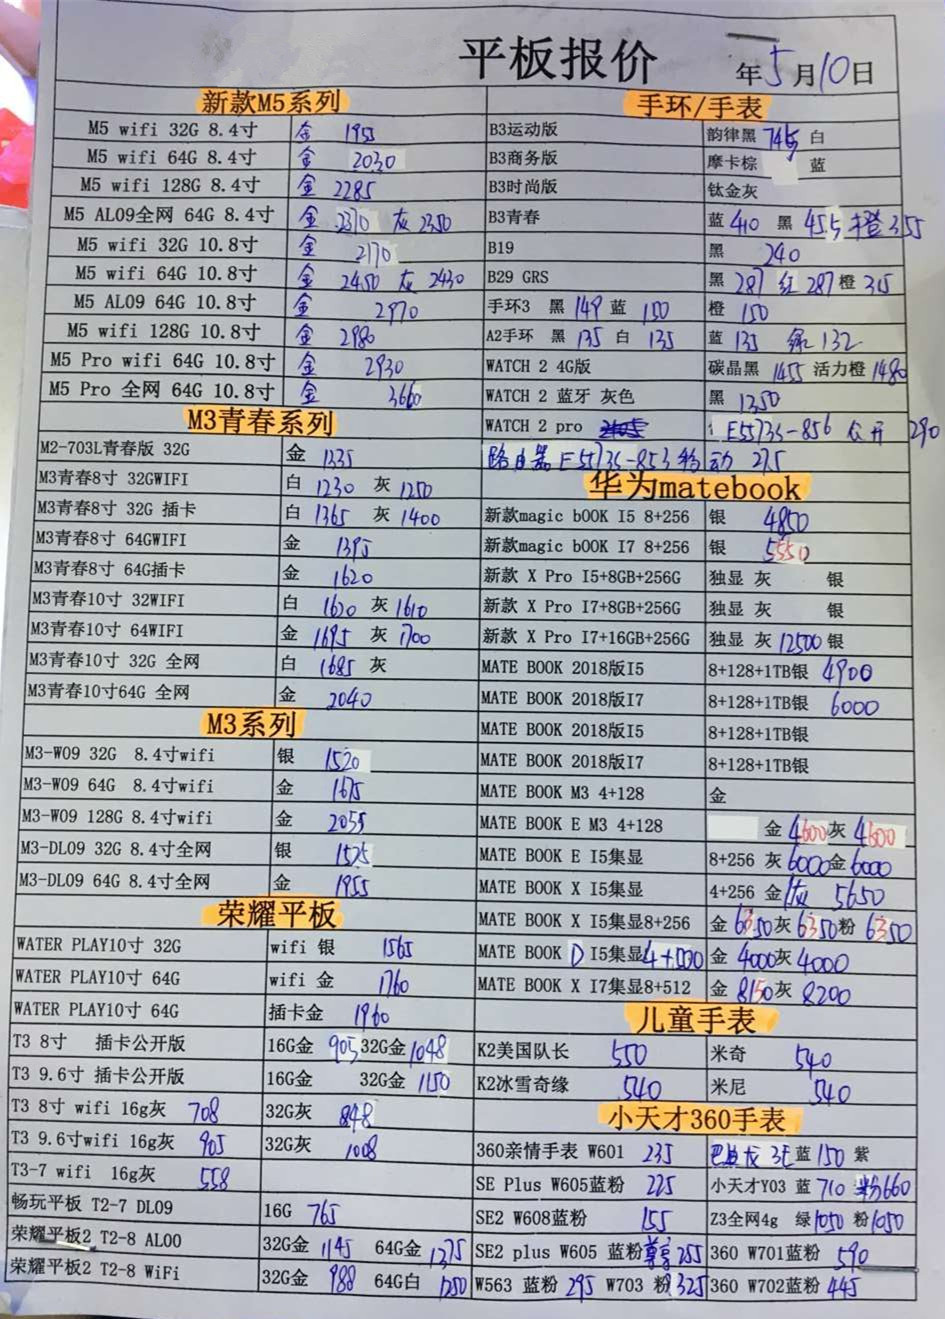 平板报价
年5月10日
新款M5系列
M5 wifi 32G 8.4寸 金 1955
M5 wifi 64G 8.4寸 金 2030
M5 wifi 128G 8.4寸 金 2285
M5 AL09全网 64G 8.4寸 金 2370 灰 2350
M5 wifi 32G 10.8寸 金 2170
M5 wifi 64G 10.8寸 金 2450 灰 2430
M5 AL09 64G 10.8寸 金 2970
M5 wifi 128G 10.8寸 金 2980
M5 Pro wifi 64G 10.8寸 金 2930
M5 Pro 全网 64G 10.8寸 金 3660
M3青春系列
M2-703L青春版 32G 金 1335
M3青春8寸 32GWIFI 白 1230 灰 1250
M3青春8寸 32G 插卡 白 1365 灰 1400
M3青春8寸 64GWIFI 金 1395
M3青春8寸 64G插卡 金 1620
M3青春10寸 32WIFI 白 1620 灰 1610
M3青春10寸 64WIFI 金 1695 灰 1700
M3青春10寸 32G 全网 白 1685 灰
M3青春10寸64G 全网 金 2040
M3系列
M3-W09 32G 8.4寸wifi 银 1520
M3-W09 64G 8.4寸wifi 金 1675
M3-W09 128G 8.4寸wifi 金 2055
M3-DL09 32G 8.4寸全网 银 1525
M3-DL09 64G 8.4寸全网 金 1955
荣耀平板
WATER PLAY10寸 32G wifi 银 1565
WATER PLAY10寸 64G wifi 金 1760
WATER PLAY10寸 64G 插卡金 1960
T3 8寸 插卡公开版 16G金 905 32G金 1048
T3 9.6寸 插卡公开版 16G金 32G金 1150
T3 8寸 wifi 16g灰 708 32G灰 848
T3 9.6寸wifi 16g灰 905 32G灰 1008
T3-7 wifi 16g灰 558
畅玩平板 T2-7 DL09 16G 765
荣耀平板2 T2-8 AL00 32G金 1145 64G金 1275
荣耀平板2 T2-8 WiFi 32G金 988 64G白 1250
手环/手表
B3运动版 韵律黑 745 白
B3商务版 摩卡棕 蓝
B3时尚版 钛金灰
B3青春 蓝 410 黑 455 橙 355
B19 黑 240
B29 GRS 黑 287 红 287 橙 315
手环3 黑 149 蓝 150 橙 150
A2手环 黑 135 白 135 蓝 135 绿 132
WATCH 2 4G版 碳晶黑 1455 活力橙 1480
WATCH 2 蓝牙 灰色 黑 1350
WATCH 2 pro E5573s-856 公开 290
路由器 E5573s-853 移动 275
华为matebook
新款magic bOOK I5 8+256 银 4850
新款magic bOOK I7 8+256 银 5550
新款 X Pro I5+8GB+256G 独显 灰 银
新款 X Pro I7+8GB+256G 独显 灰 银
新款 X Pro I7+16GB+256G 独显 灰 12500 银
MATE BOOK 2018版I5 8+128+1TB银 4900
MATE BOOK 2018版I7 8+128+1TB银 6000
MATE BOOK 2018版I5 8+128+1TB银
MATE BOOK 2018版I7 8+128+1TB银
MATE BOOK M3 4+128 金
MATE BOOK E M3 4+128 金 4600 灰 4600
MATE BOOK E I5集显 8+256 灰 6000 金 6000
MATE BOOK X I5集显 4+256 金/灰 5650
MATE BOOK X I5集显8+256 金 6350 灰 6350 粉 6350
MATE BOOK D I5集显4+500 金 4000 灰 4000
MATE BOOK X I7集显8+512 金 8150 灰 8200
儿童手表
K2美国队长 550 米奇 540
K2冰雪奇缘 540 米尼 540
小天才360手表
360亲情手表 W601 235 巴迪龙 3E 蓝 150 紫
SE Plus W605蓝粉 225 小天才Y03 蓝 710 粉 660
SE2 W608蓝粉 155 Z3全网4g 绿 1050 粉 1050
SE2 plus W605 蓝粉 尊享 255 360 W701蓝粉 590
W563 蓝粉 295 W703 粉 325 360 W702蓝粉 445